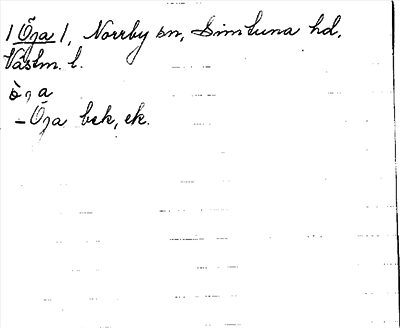 / Öja /, Norrby sn, Simtuna hd.
Västm. l.
ò̀ȷa
– Öja bek, ek.